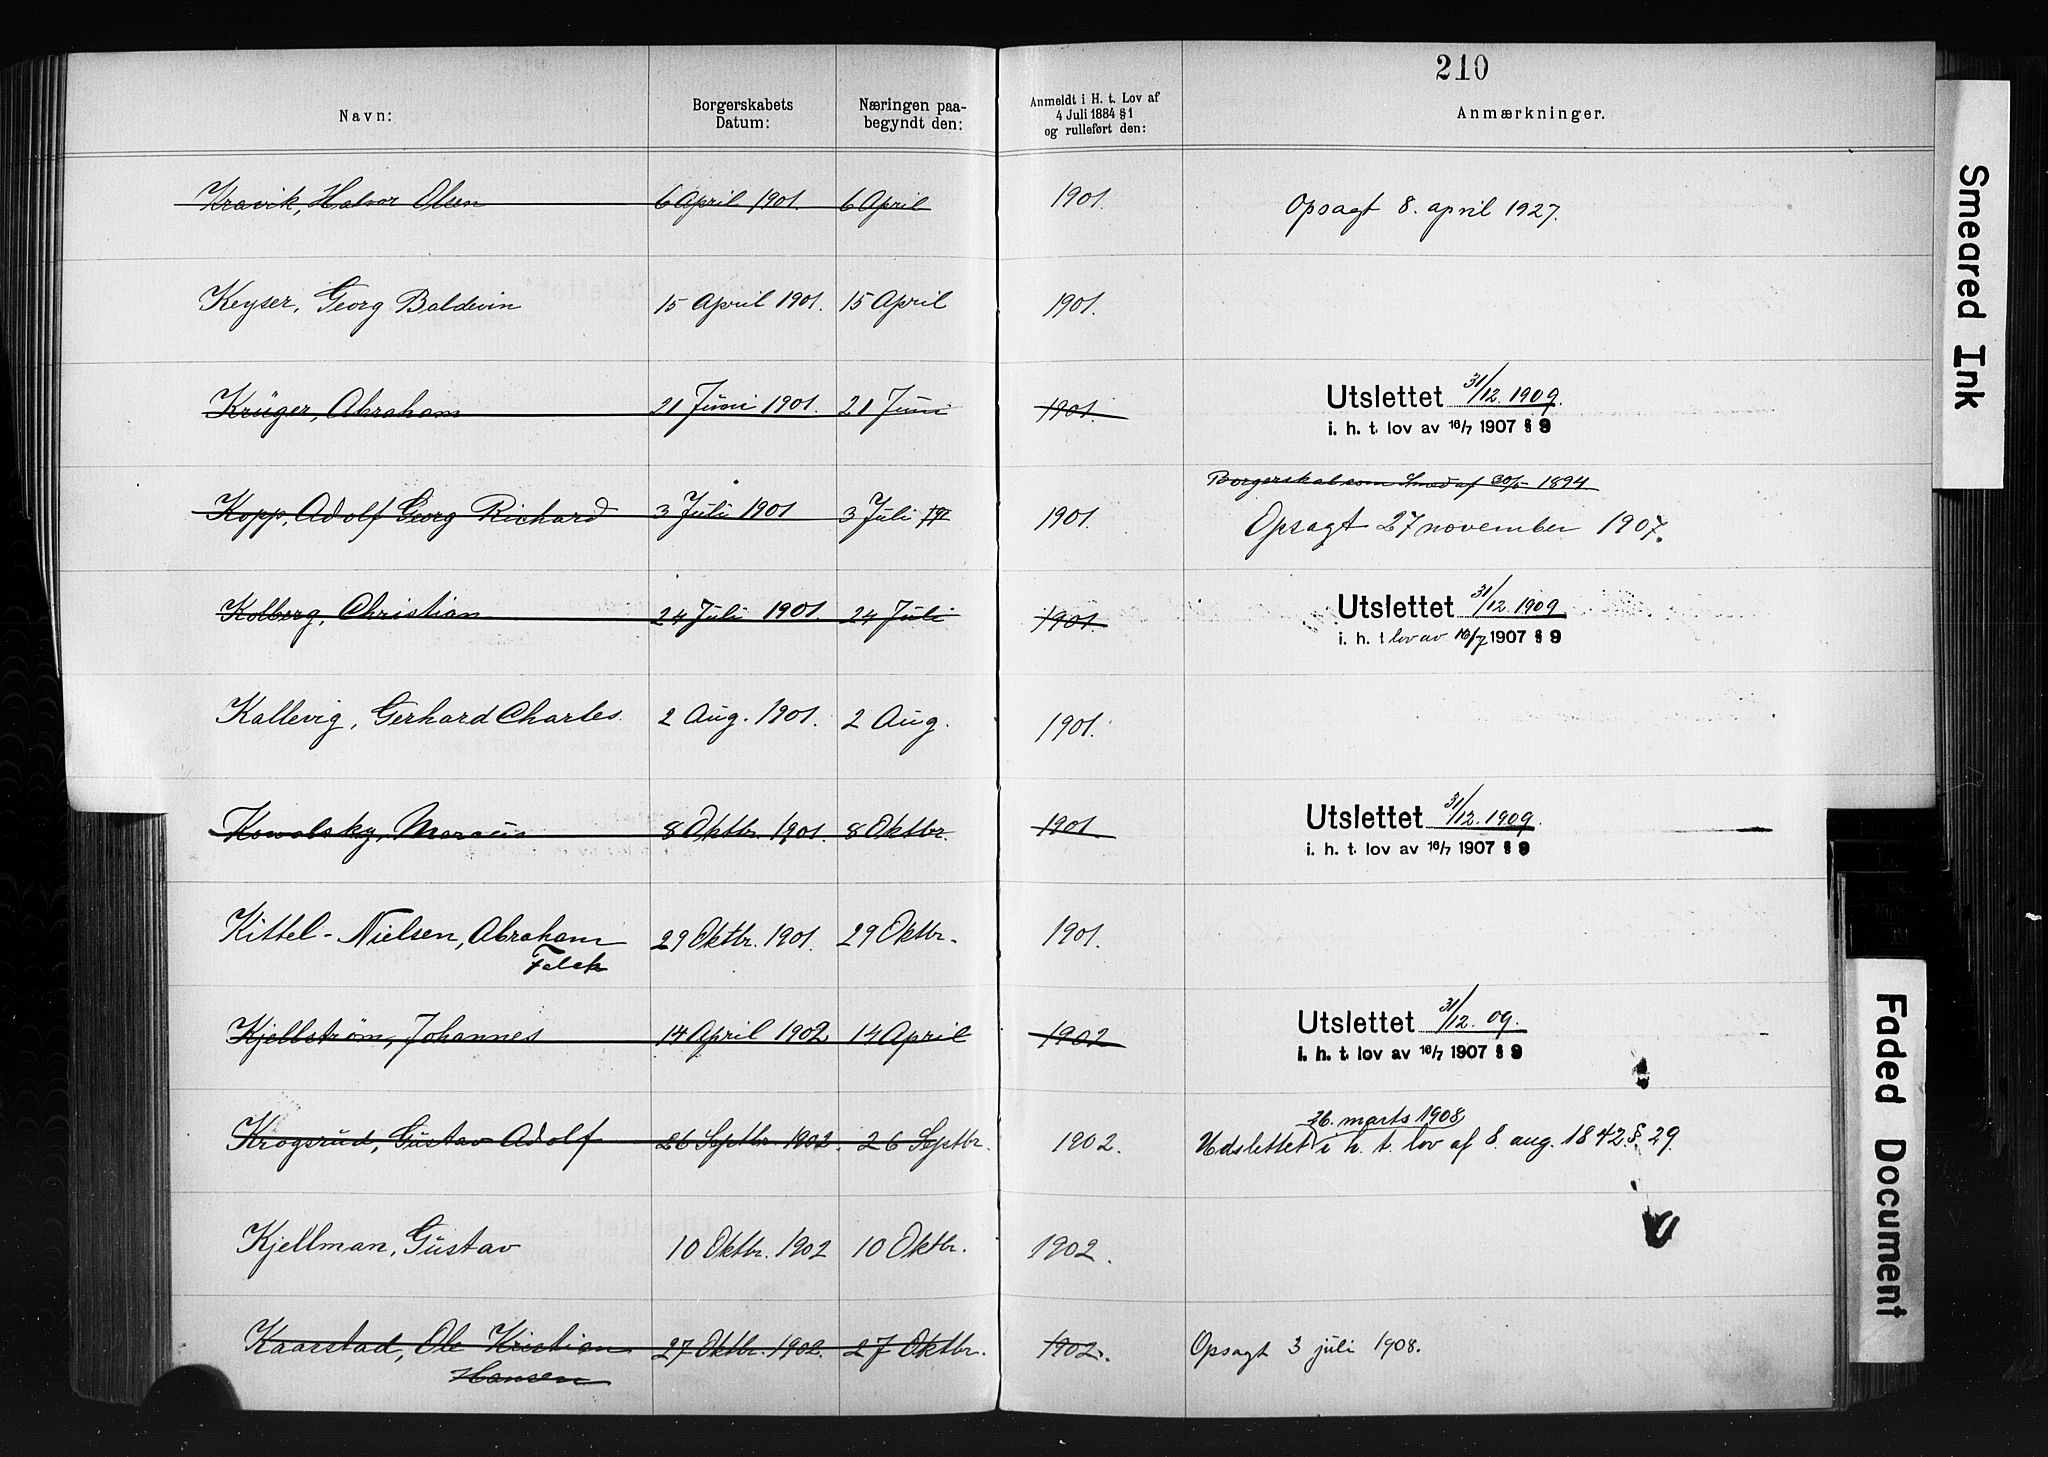 210
Navn: Borgerskabets Datum: Næringen paa-begyndt den: Anmeldt i H. t. Lov af 4 Juli 1884 § 1 og rulleført den: Anmærkninger.
Kravik, Halvor Olsen 6 April 1901. 6 April 1901. Opsagt 8. april 1927.
Keyser, Georg Baldewin 15 April 1901. 15 April 1901.
Krüger, Abraham 21 Juni 1901. 21 Juni 1901. Utslettet 31/12. 1909.
i. h. t. lov av 16/7 1907 § 9
Borgerskab som Smed af 30/5 1894
Kopp, Adolf Georg Richard 3 Juli 1901 3 Juli 1901. Opsagt 27 november 1907.
Kolberg, Christian 24 Juli 1901. 24 Juli 1901. Utslettet 31/12. 1909.
i. h. t lov av 16/7 1907 § 9
Kallevig, Gerhard Charles. 2 Aug. 1901. 2 Aug. 1901.
Kowalsky, Marcus 8 Oktbr. 1901. 8 Oktbr. 1901. Utslettet 31/12. 1909.
i. h. t. lov av 16/7 1907 § 9
Kittel-Nielsen, Abraham 29 Oktbr. 1901. 29 Oktbr. 1901.
Falck
Kjellstrøm, Johannes 14 April 1902 14 April 1902 Utslettet 31/12. 09.
i. h. t. lov av 16/7 1907 § 9
26. marts 1908
Krogsrud, Gustav Adolf 26 Septbr. 1902. 26 Septbr. 1902. Udslettet i h. t. lov af 8. aug. 1842 §. 29.
Kjellman, Gustav 10 Oktbr. 1902 10 Oktbr. 1902.
Kaarstad, Ole Kristian 27 Oktbr. 1902. 27 Oktbr. 1902. Opsagt 3 juli 1908.
Hansen
Smeared Ink
Faded Document